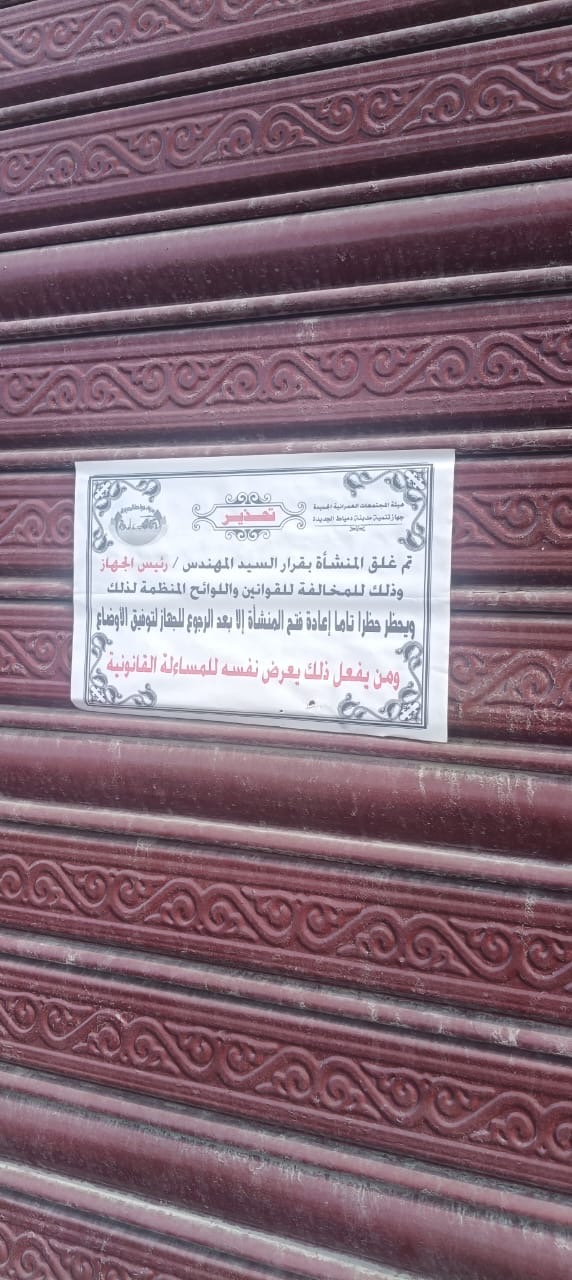 هيئة المجتمعات العمرانية الجديدة
جهاز تنمية مدينة دمياط الجديدة
تحذير
تم غلق المنشأة بقرار السيد المهندس / رئيس الجهاز
وذلك للمخالفة للقوانين واللوائح المنظمة لذلك
ويحظر حظرا تاما إعادة فتح المنشأة إلا بعد الرجوع للجهاز لتوفيق الأوضاع
ومن يفعل ذلك يعرض نفسه للمساءلة القانونية